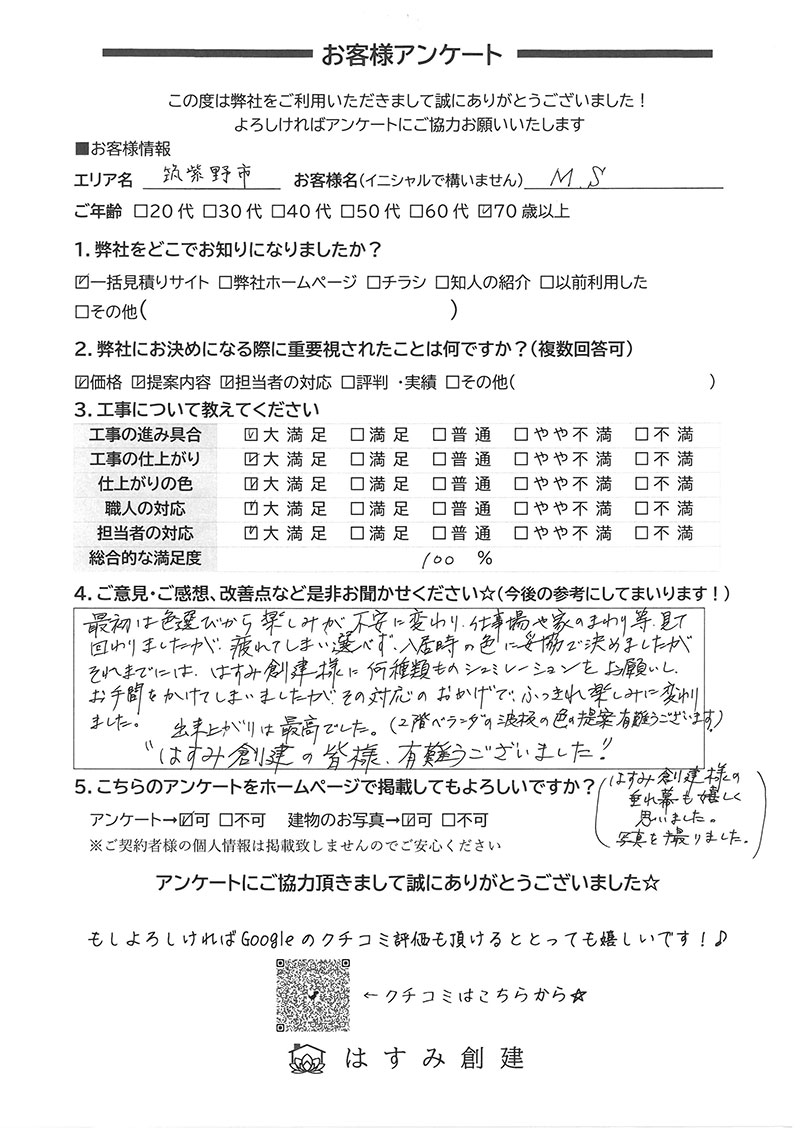 お客様アンケート
この度は弊社をご利用いただきまして誠にありがとうございました！
よろしければアンケートにご協力お願いいたします
■お客様情報
エリア名 筑紫野市 お客様名(イニシャルで構いません) M.S
ご年齢 □20代 □30代 □40代 □50代 □60代 ☑70歳以上
1. 弊社をどこでお知りになりましたか？
☑一括見積りサイト □弊社ホームページ □チラシ □知人の紹介 □以前利用した
□その他( )
2. 弊社にお決めになる際に重要視されたことは何ですか？(複数回答可)
☑価格 ☑提案内容 ☑担当者の対応 □評判・実績 □その他( )
3. 工事について教えてください
工事の進み具合 ☑大満足 □満足 □普通 □やや不満 □不満
工事の仕上がり ☑大満足 □満足 □普通 □やや不満 □不満
仕上がりの色 ☑大満足 □満足 □普通 □やや不満 □不満
職人の対応 ☑大満足 □満足 □普通 □やや不満 □不満
担当者の対応 ☑大満足 □満足 □普通 □やや不満 □不満
総合的な満足度 100 %
4. ご意見・ご感想、改善点など是非お聞かせください☆(今後の参考にしてまいります！)
最初は色選びから楽しみが不安に変わり、仕事場や家のまわり等、見て
回わりましたが、疲れてしまい選べず、入居時の色に妥協で決めましたが
それまでには、はすみ創建様に何種類ものシュミレーションをお願いし、
お手間をかけてしまいましたが、その対応のおかげで、ふっきれ楽しみに変わり
ました。 出来上がりは最高でした。(2階ベランダの波板の色の提案有難うございます)
"はすみ創建の皆様、有難うございました!"
5. こちらのアンケートをホームページで掲載してもよろしいですか？
アンケート→☑可 □不可 建物のお写真→☑可 □不可
※ご契約者様の個人情報は掲載致しませんのでご安心ください
(はすみ創建様の
垂れ幕も嬉しく
思いました。
写真を撮りました。)
アンケートにご協力頂きまして誠にありがとうございました☆
もしよろしければGoogleのクチコミ評価も頂けるととっても嬉しいです！♪
←クチコミはこちらから☆
はすみ創建